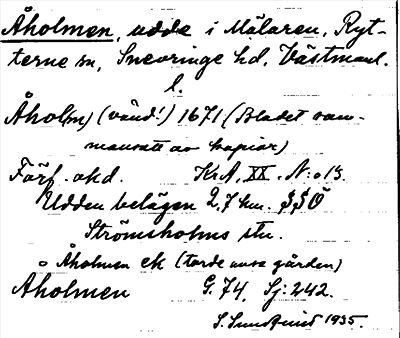 Åholmen, udde i Mälaren, Ryt-
terne sn, Snevringe hd, Västmanl.
l.
Åhol(m) (vänd!) 1671 (Bladet sam-
mansatt av kopior)
Förf. okd. KrA, XX. N:o 13.
Udden belägen 2,7 km. SSÖ
Strömsholms stn.
o Åholmen ek (torde avse gården)
Åholmen G. 74, Sj: 242.
S. 1935.